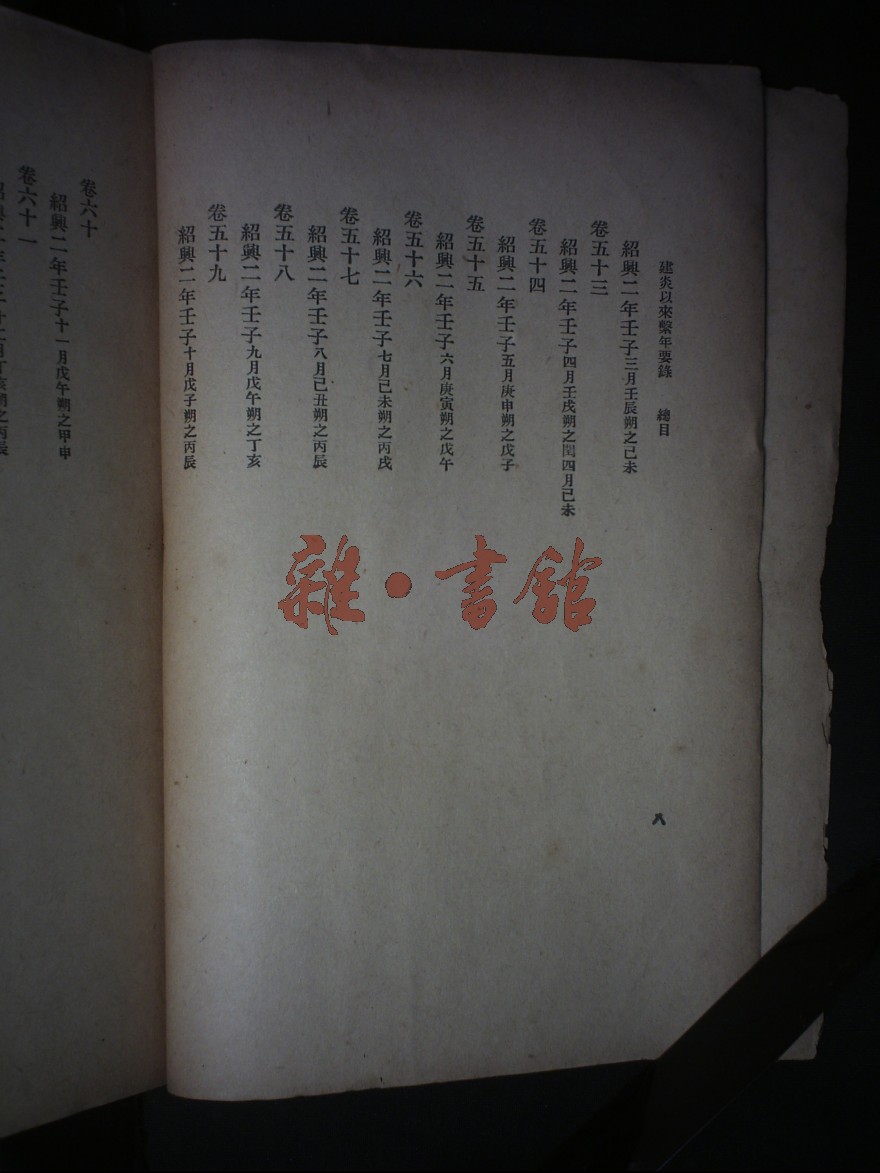 建炎以來繫年要錄 總目
紹興二年壬子三月壬辰朔之己未
卷五十三
紹興二年壬子四月壬戌朔之閏四月己未
卷五十四
紹興二年壬子五月庚申朔之戊子
卷五十五
紹興二年壬子六月庚寅朔之戊午
卷五十六
紹興二年壬子七月己未朔之丙戌
卷五十七
紹興二年壬子八月己丑朔之丙辰
卷五十八
紹興二年壬子九月戊午朔之丁亥
卷五十九
紹興二年壬子十月戊子朔之丙辰
八
卷六十
紹興二年壬子十一月戊午朔之甲申
卷六十一
雜·書館